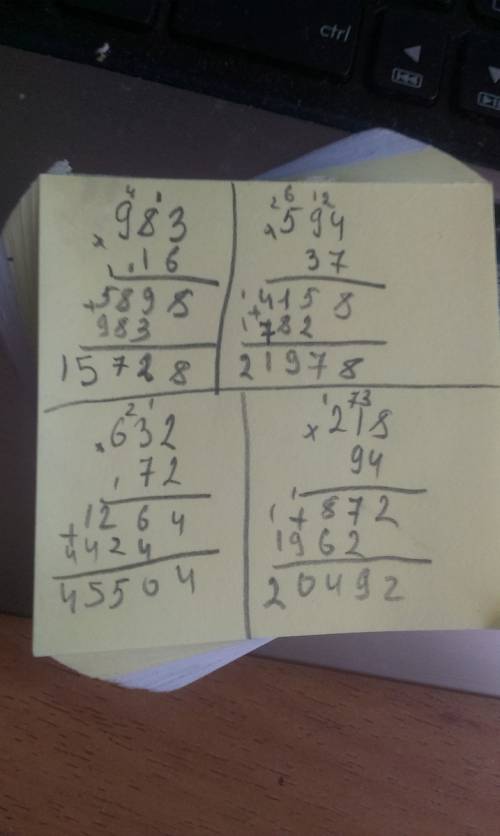 ctrl
4 1
× 983
16
1 1
+ 5898
983
15728
26 12
× 594
37
1
+ 4158
1 782
21978
2 1
× 632
72
1
+ 1264
4424
45504
1 73
× 218
94
1
1 + 872
1962
20492